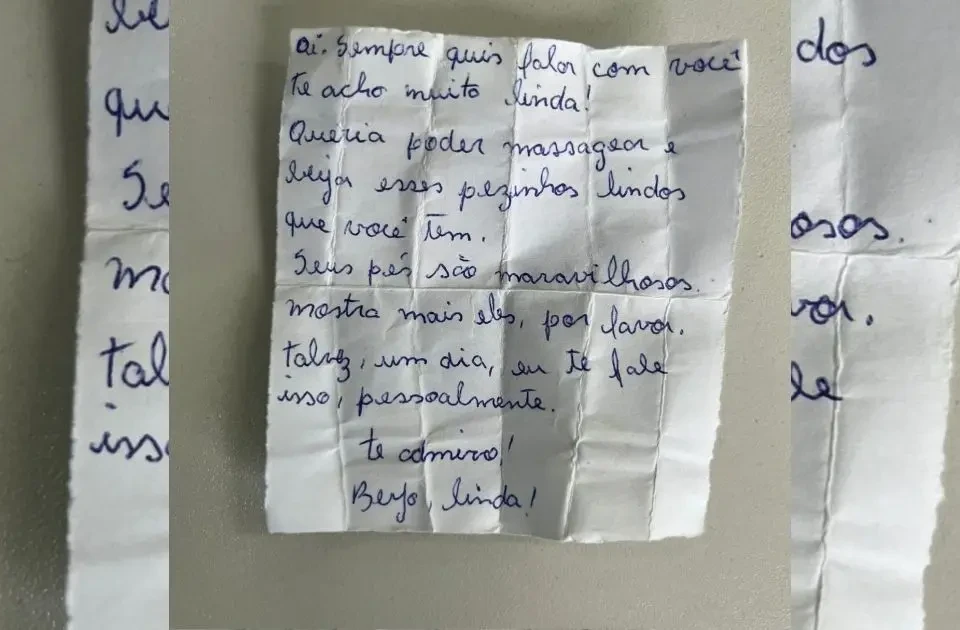 Oi. Sempre quis falar com você
te acho muito linda!
Queria poder massagear e
beijar esses pezinhos lindos
que você tem.
Seus pés são maravilhosos.
mostra mais eles, por favor.
talvez, um dia, eu te fale
isso, pessoalmente.
te admiro!
Beijo, linda!